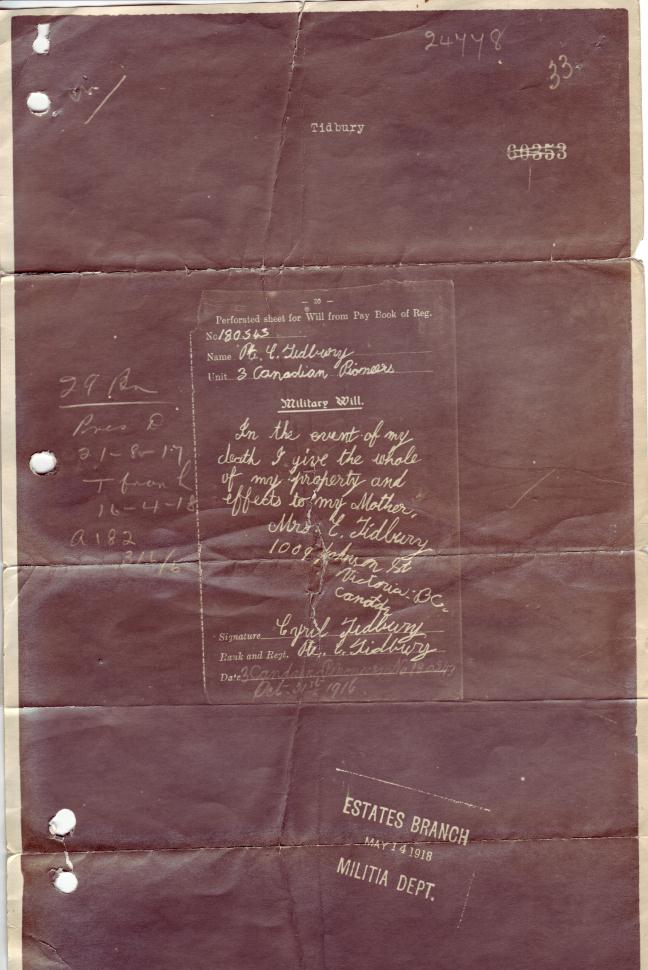 24448
33
Tidbury
60353
— 20 —
Perforated sheet for Will from Pay Book of Reg.
No 180543
Name Pte. C. Tidbury
Unit 3 Canadian Pioneers
Military Will.
In the event of my
death I give the whole
of my property and
effects to my Mother,
Mrs. C. Tidbury
1009 Johnson St
Victoria. BC.
Canada
Signature Cyril Tidbury
Rank and Regt. Pte. C. Tidbury
Date 3 Canadian Pioneers No 180543
Oct-31st 1916.
29 Bn
Pres D
21-8-17
16-4-18
A 182
ESTATES BRANCH
MAY 14 1918
MILITIA DEPT.